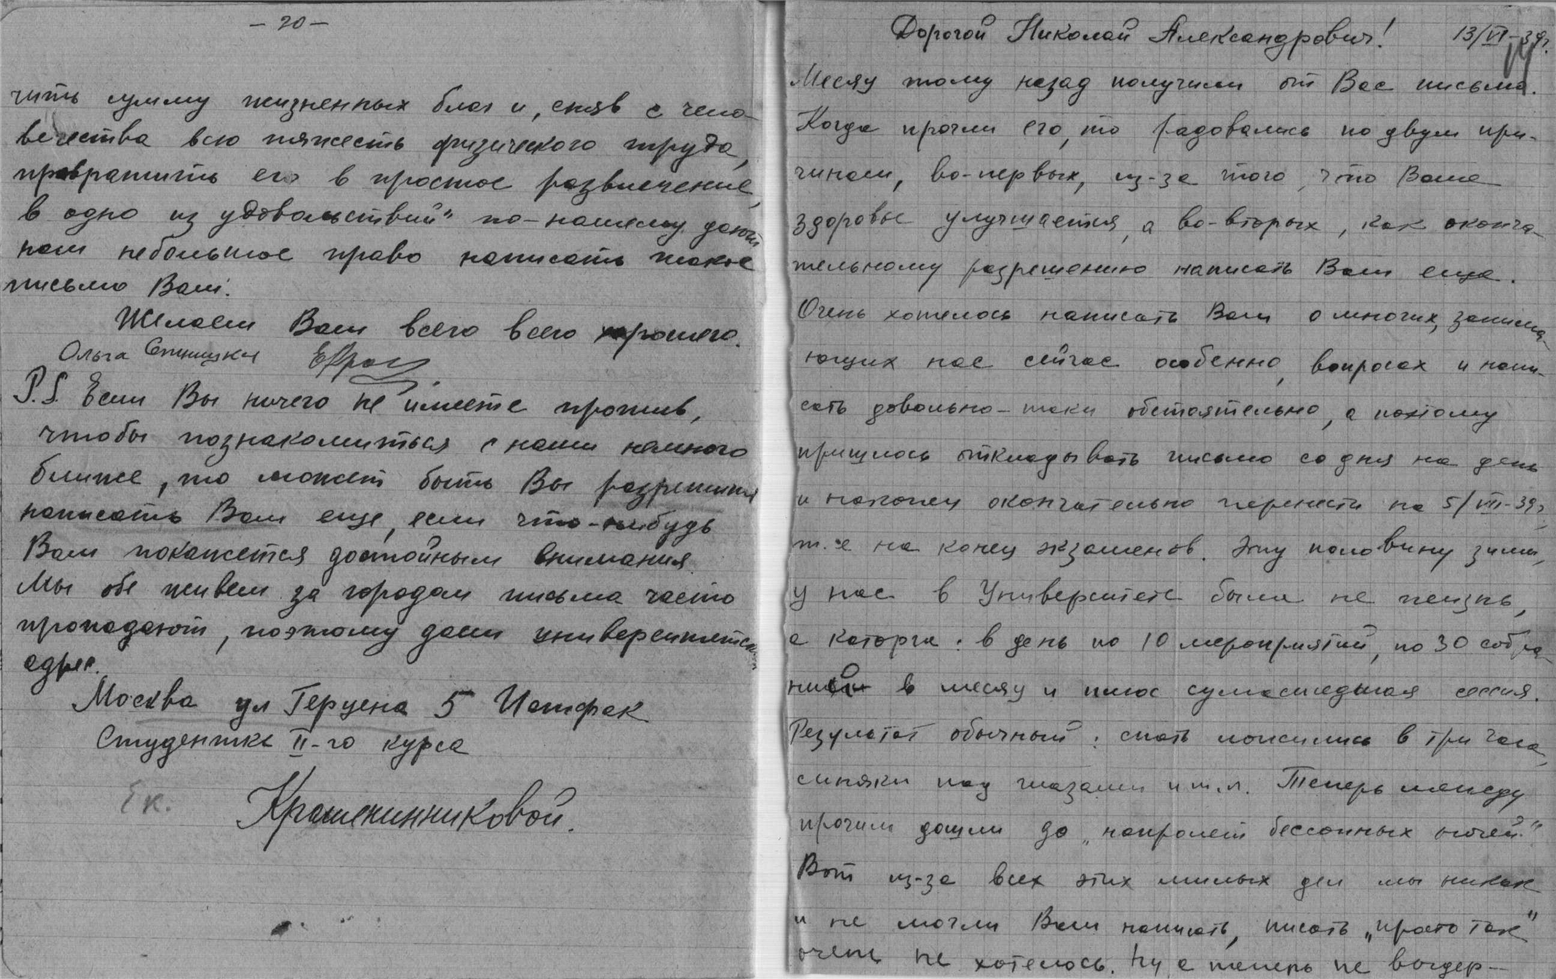 - 20 -
чить сумму жизненных благ и, сняв с чело-
вечества всю тяжесть физического труда,
превратить его в простое развлечение,
в одно из удовольствий" по-нашему дают
нам небольшое право написать такое
письмо Вам.
Желаем Вам всего всего хорошего.
Ольга
P.S Если Вы ничего не имеете против,
чтобы познакомиться с нами немного
ближе, то может быть Вы разрешите
написать Вам еще, если что-нибудь
Вам покажется достойным внимания.
Мы обе живем за городом письма часто
пропадают, поэтому даем университетск
адрес.
Москва ул Герцена 5 Истфак
Студентке II-го курса
Ек. Крашенинниковой.
Дорогой Николай Александрович! 13/VI-39г.
Месяц тому назад получили от Вас письмо.
Когда прочли его, то радовались по двум при-
чинам, во-первых, из-за того, что Ваше
здоровье улучшается, а во-вторых, как оконча-
тельному разрешению написать Вам еще.
Очень хотелось написать Вам о многих, занима-
ющих нас сейчас особенно, вопросах и напи-
сать довольно-таки обстоятельно, а поэтому
пришлось откладывать письмо со дня на день
и наконец окончательно перенести на 5/VII-39г,
т.е на конец экзаменов. Эту половину зимы,
у нас в Университете была не жизнь,
а каторга: в день по 10 мероприятий, по 30 собра-
ний в месяц и плюс сумасшедшая сессия.
Результат обычный: спать ложились в три часа,
синяки под глазами и т.п. Теперь между
прочим дошли до "напролет бессонных ночей."
Вот из-за всех этих милых дел мы никак
и не могли Вам написать, писать "просто так"
очень не хотелось. Ну а теперь не выдер-